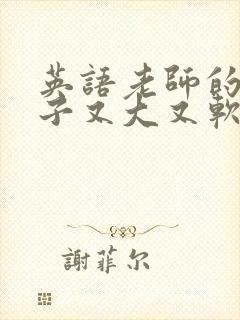 英語老師的
子又大又軟
謝菲尔